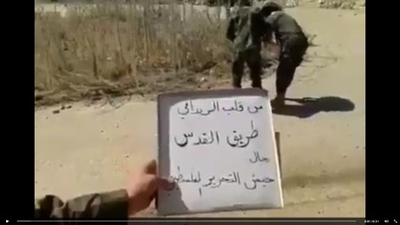 من قلب الزبداني
طريق القدس
رجال
جيش التحرير الفلسطيني